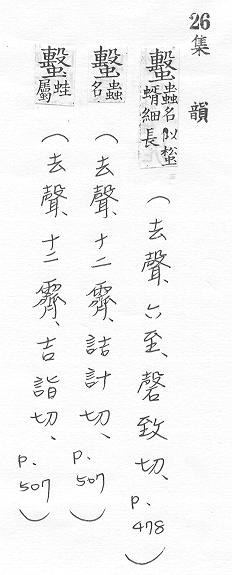 26 集韻
蟿 蟲名似蜙蝑細長(去聲、六至、磬致切、p.478)
蟿 蟲名(去聲、十二霽、詰計切、p.507)
蟿 蛙屬(去聲、十二霽、吉詣切、p.507)